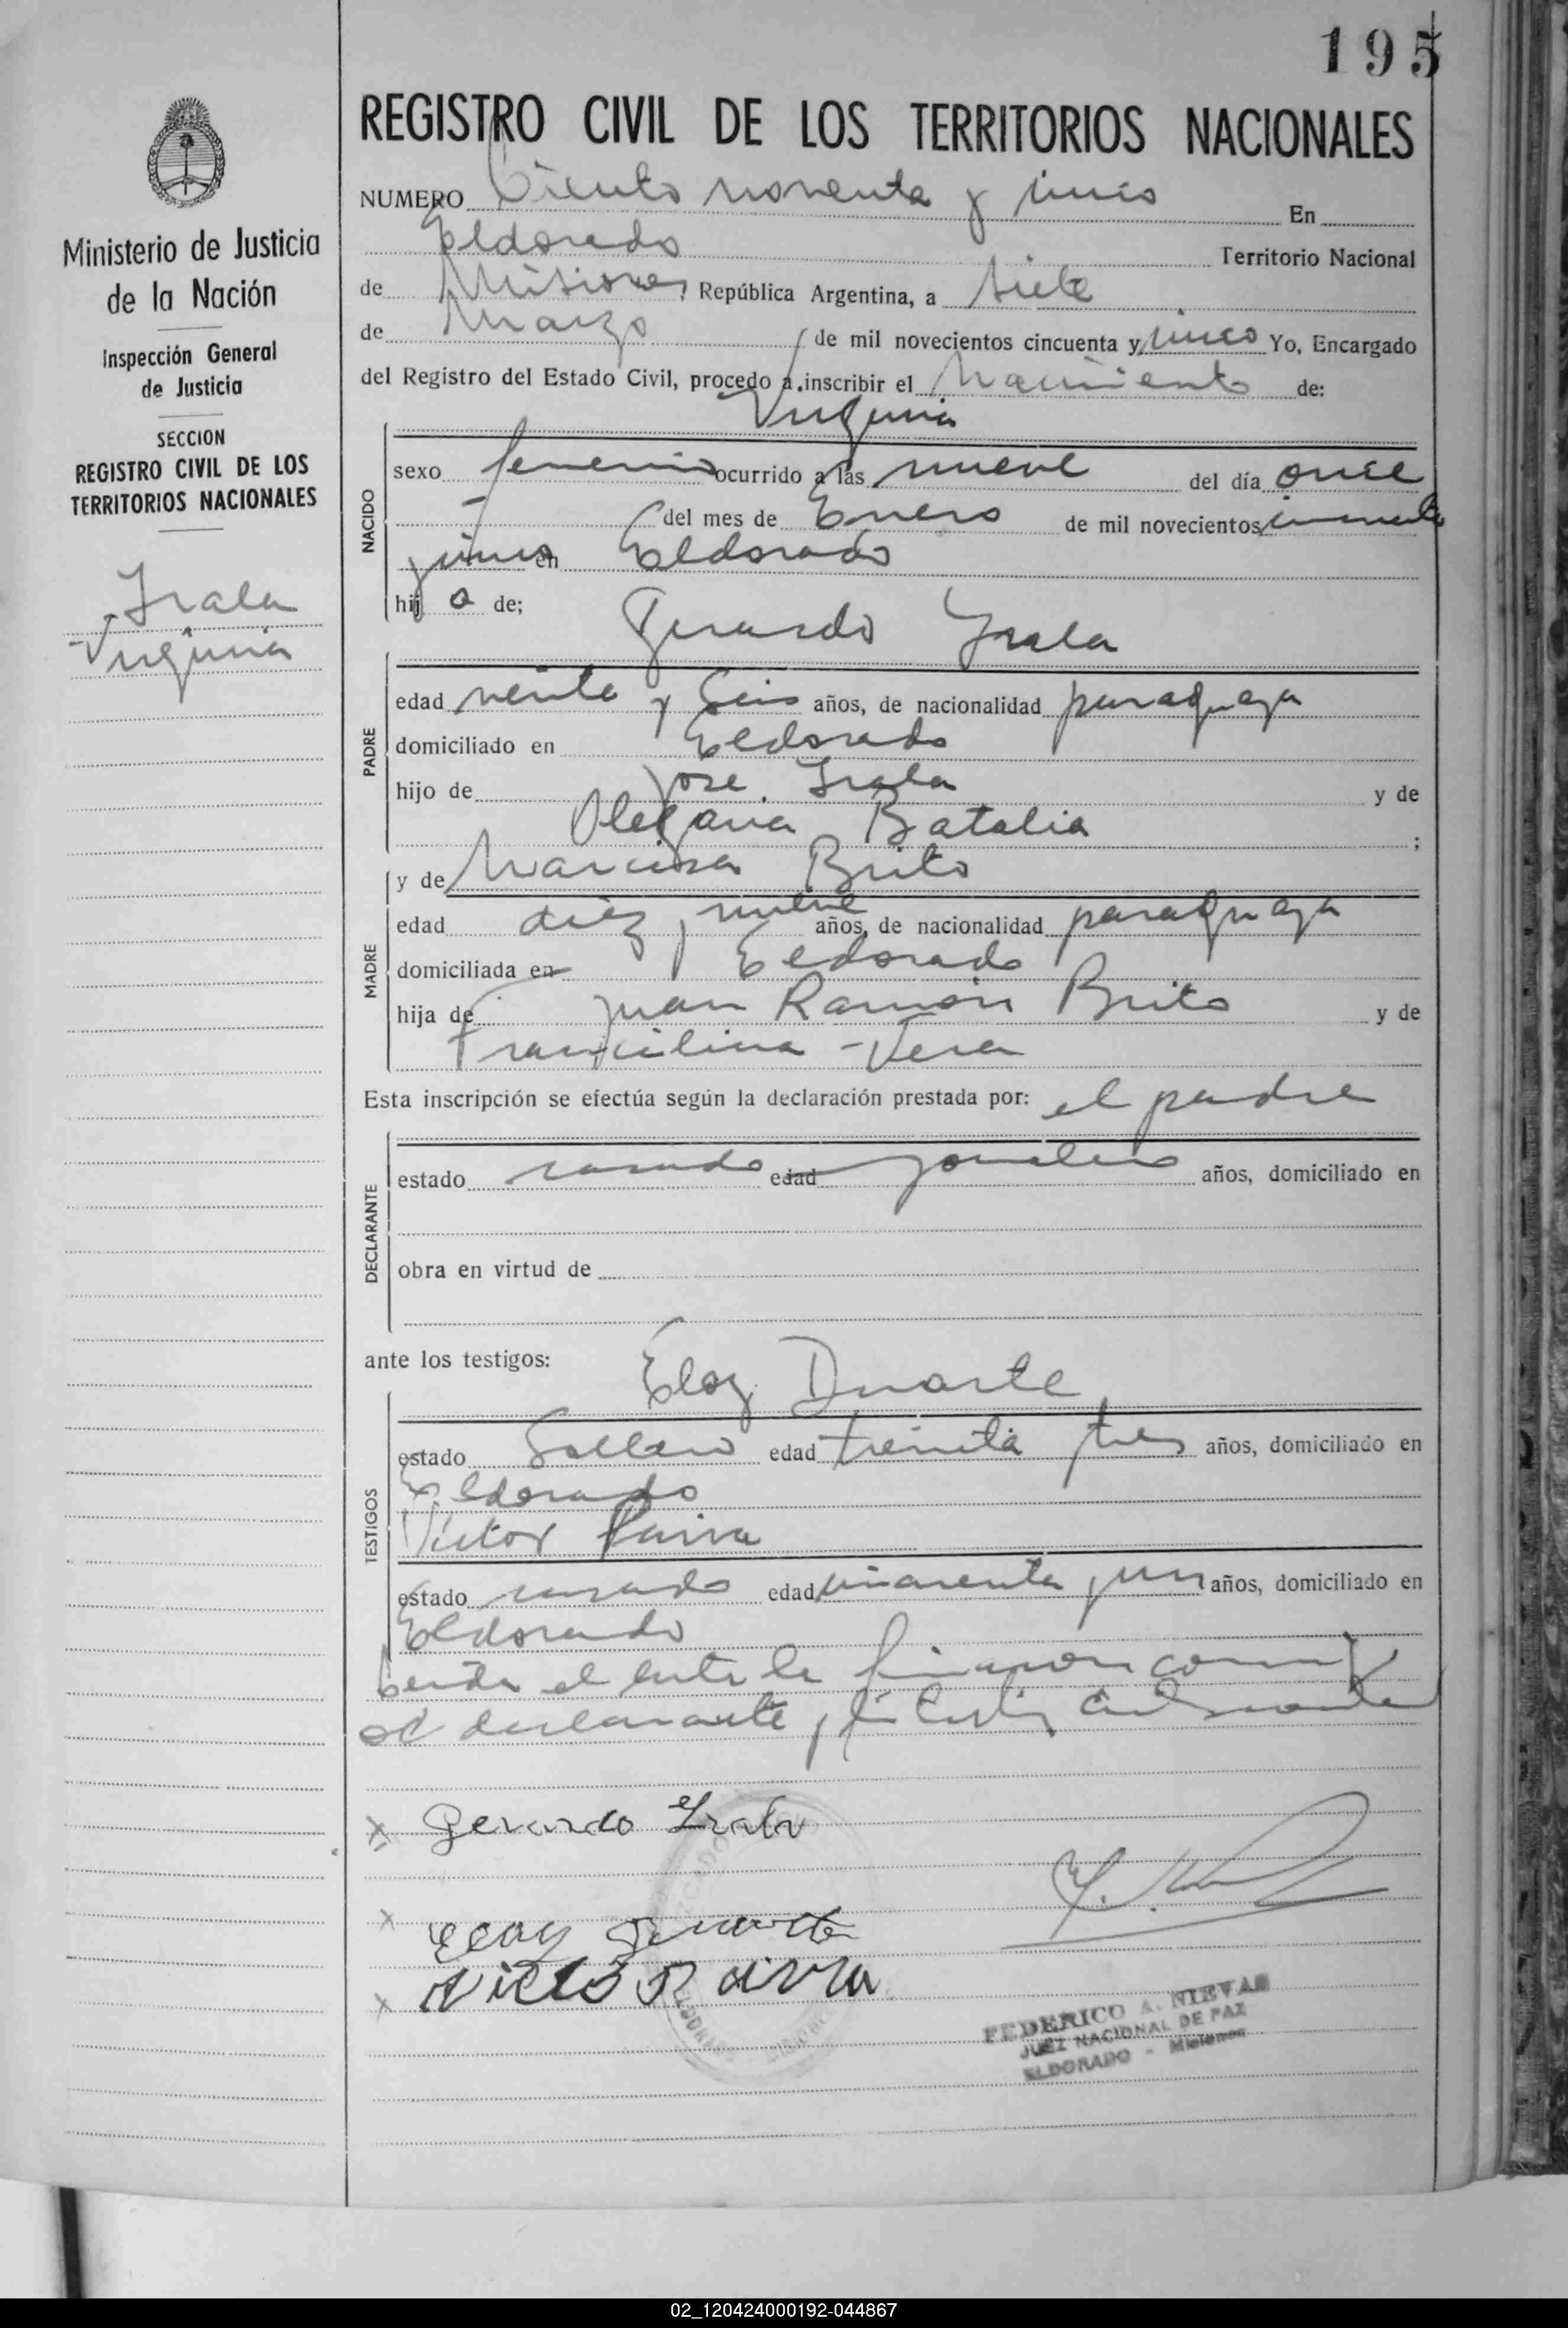 195
REGISTRO CIVIL DE LOS TERRITORIOS NACIONALES
Ministerio de Justicia
de la Nación
Inspección General
de Justicia
SECCION
REGISTRO CIVIL DE LOS
TERRITORIOS NACIONALES
Irala
Virginia
NUMERO Ciento noventa y cinco En
Eldorado Territorio Nacional
de Misiones, República Argentina, a siete
de Marzo de mil novecientos cincuenta y cinco Yo, Encargado
del Registro del Estado Civil, procedo a inscribir el Nacimiento de:
Virginia
NACIDO
sexo femenino ocurrido a las nueve del día once
del mes de Enero de mil novecientos cincuenta
y cinco en Eldorado
hij a de;
Gerardo Irala
PADRE
edad veinte y seis años, de nacionalidad paraguaya
domiciliado en Eldorado
hijo de José Irala y de
Olegaria Batalia ;
y de Narcisa Brito
MADRE
edad diez y nueve años, de nacionalidad paraguaya
domiciliada en Eldorado
hija de Juan Ramón Brito y de
Vera
Esta inscripción se efectúa según la declaración prestada por: el padre
DECLARANTE
estado casado edad jornalero años, domiciliado en
obra en virtud de
ante los testigos:
Eloy Duarte
TESTIGOS
estado soltero edad treinta y tres años, domiciliado en
Eldorado
Victor Paiva
estado casado edad cuarenta y un años, domiciliado en
Eldorado
Leída el acta la firmaron conmigo
el declarante y los testigos
x Gerardo Irala
x Eloy Duarte
x Victor Paiva
FEDERICO A. NIEVAS
JUEZ NACIONAL DE PAZ
ELDORADO - Misiones
02_120424000192-044867